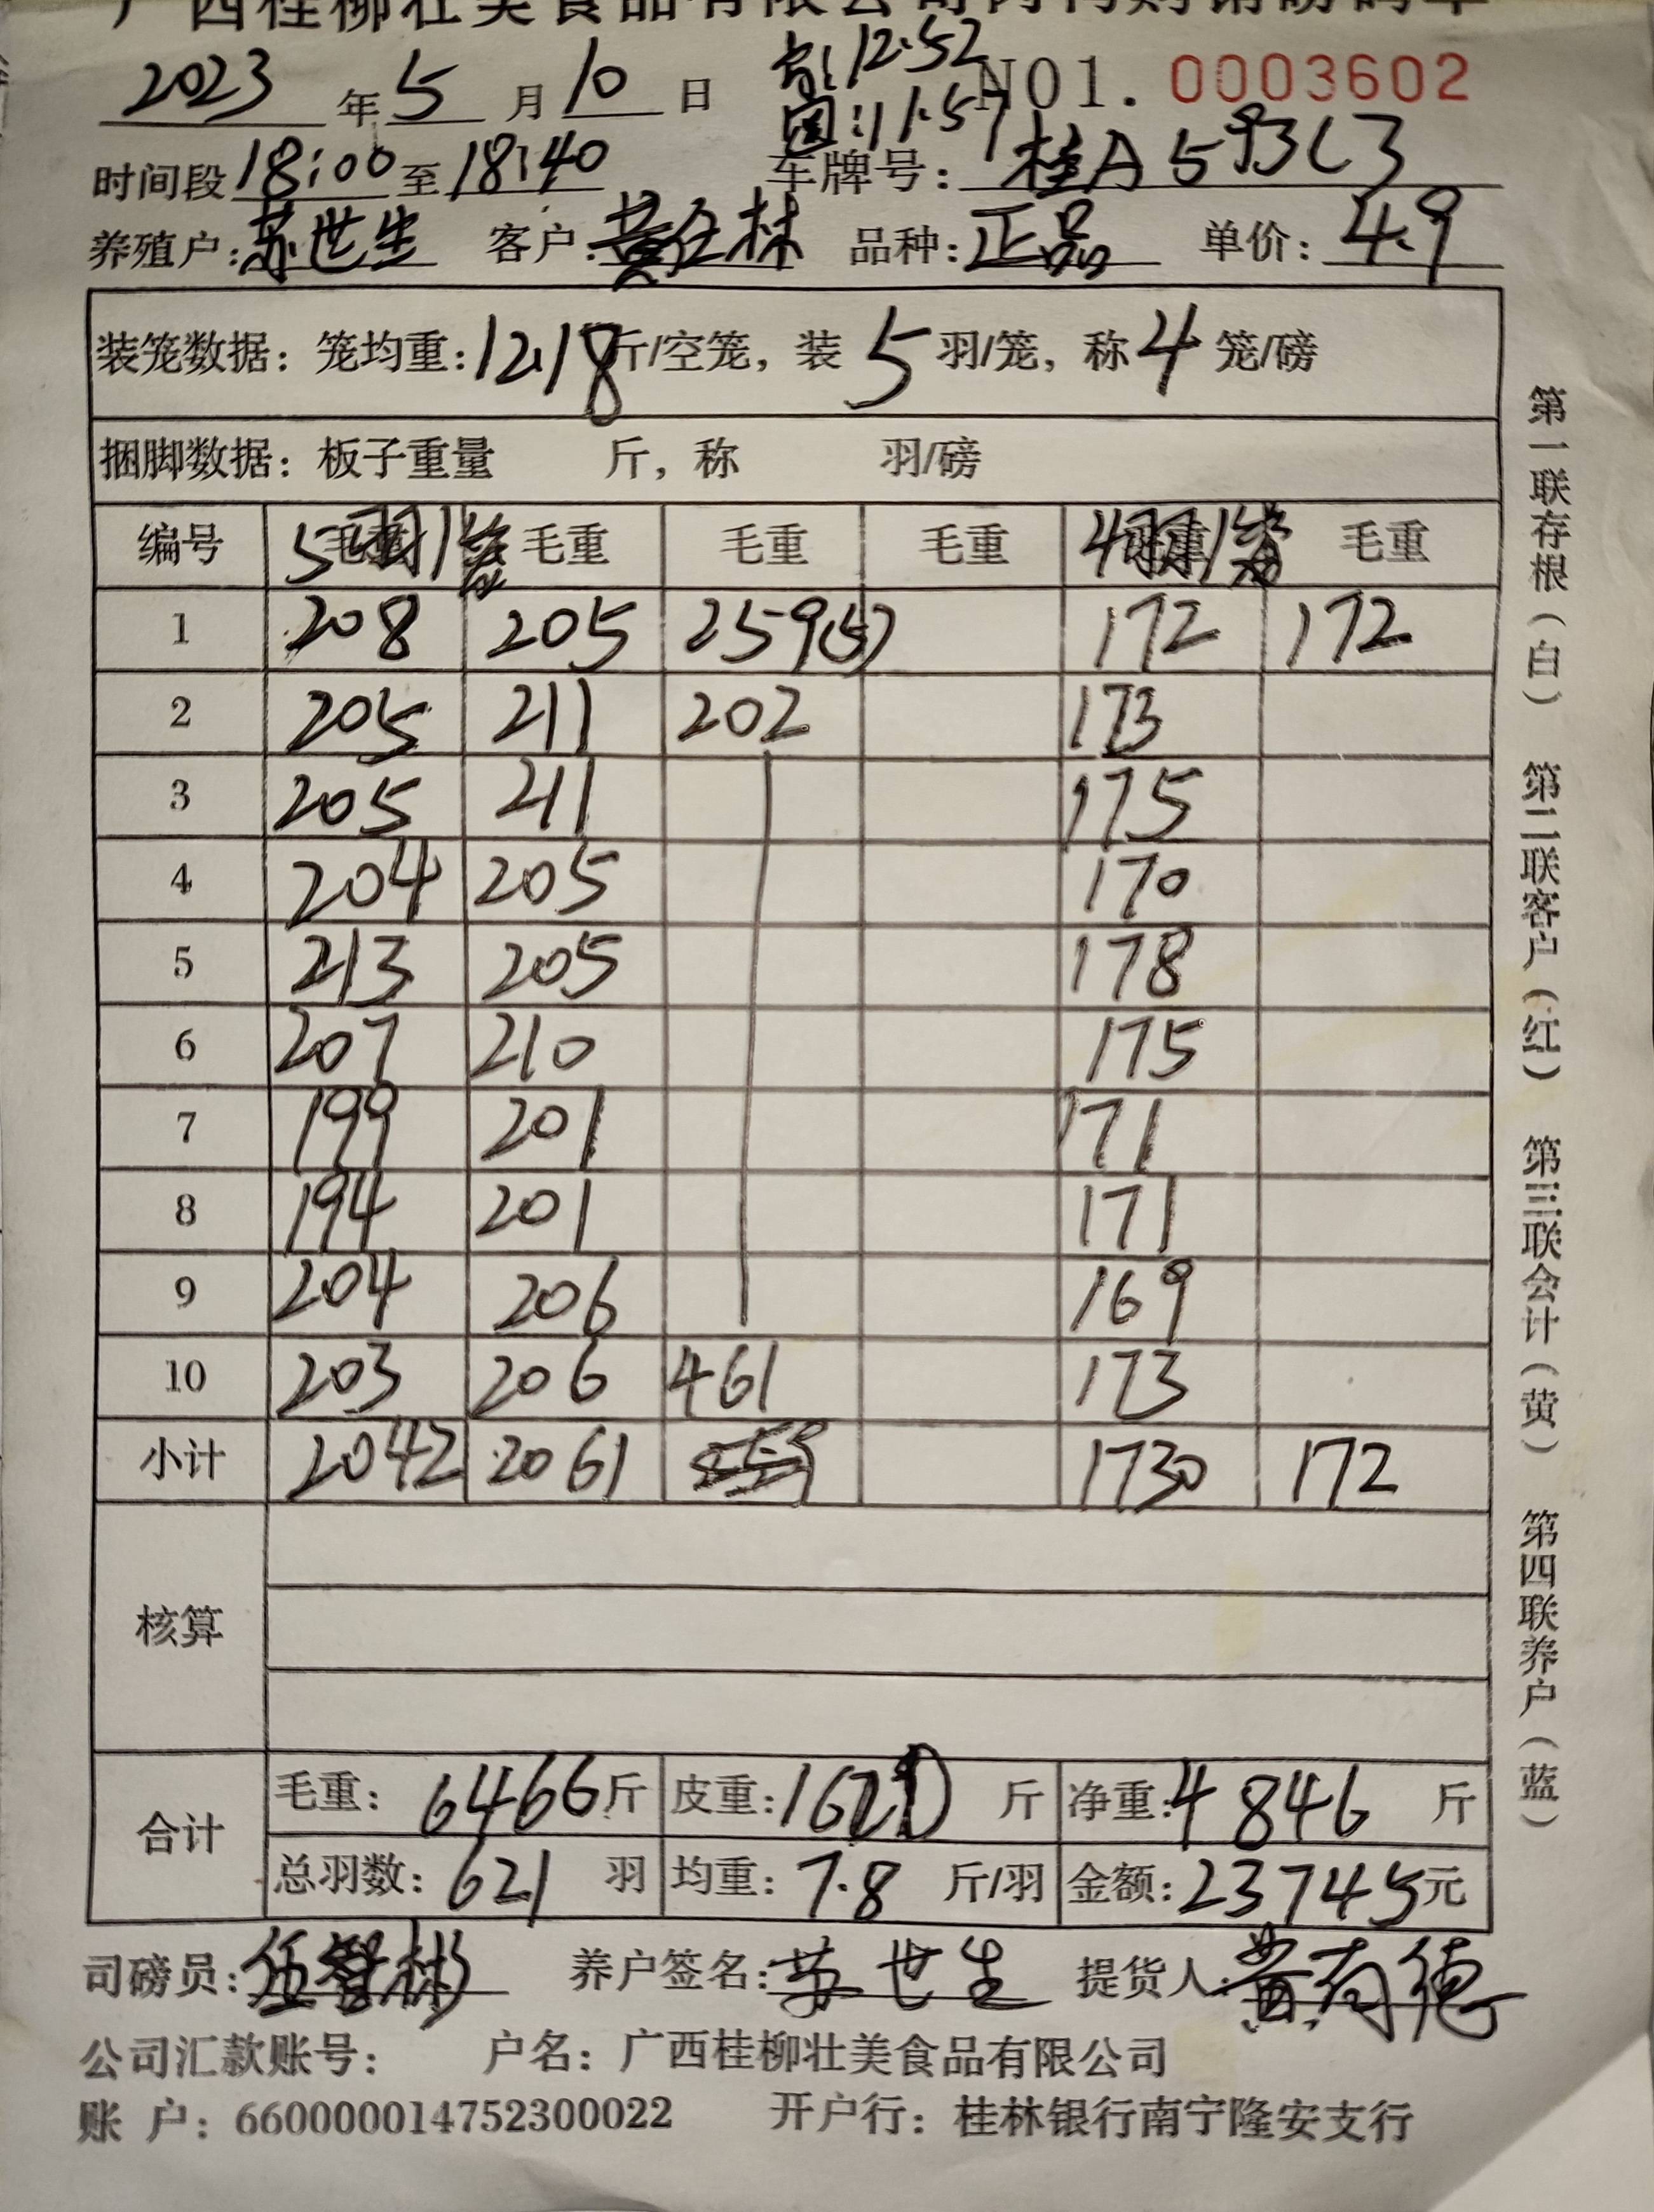 广西桂柳壮美食品有限公司肉鸭购销磅码单
2023年5月10日 NO1. 0003602
离:12:52
回:11:57
时间段18:00至18:40 车牌号:桂A593C3
养殖户:苏世生 客户:黄任林 品种:正品 单价:4.9
装笼数据:笼均重:12.18斤/空笼,装5羽/笼,称4笼/磅
捆脚数据:板子重量 斤,称 羽/磅
编号 5羽/笼 毛重 毛重 毛重 4羽/笼 毛重
1 208 205 259(5) 172 172
2 205 211 202 173
3 205 211 175
4 204 205 170
5 213 205 178
6 207 210 175
7 199 201 171
8 194 201 171
9 204 206 169
10 203 206 461 173
小计 2042 2061 1730 172
核算
合计 毛重:6466斤 皮重:1620斤 净重:4846斤
总羽数:621羽 均重:7.8斤/羽 金额:23745元
司磅员:伍智彬 养户签名:苏世生 提货人:黄有德
公司汇款账号: 户名:广西桂柳壮美食品有限公司
账 户:660000014752300022 开户行:桂林银行南宁隆安支行
第一联存根(白) 第二联客户(红) 第三联会计(黄) 第四联养户(蓝)